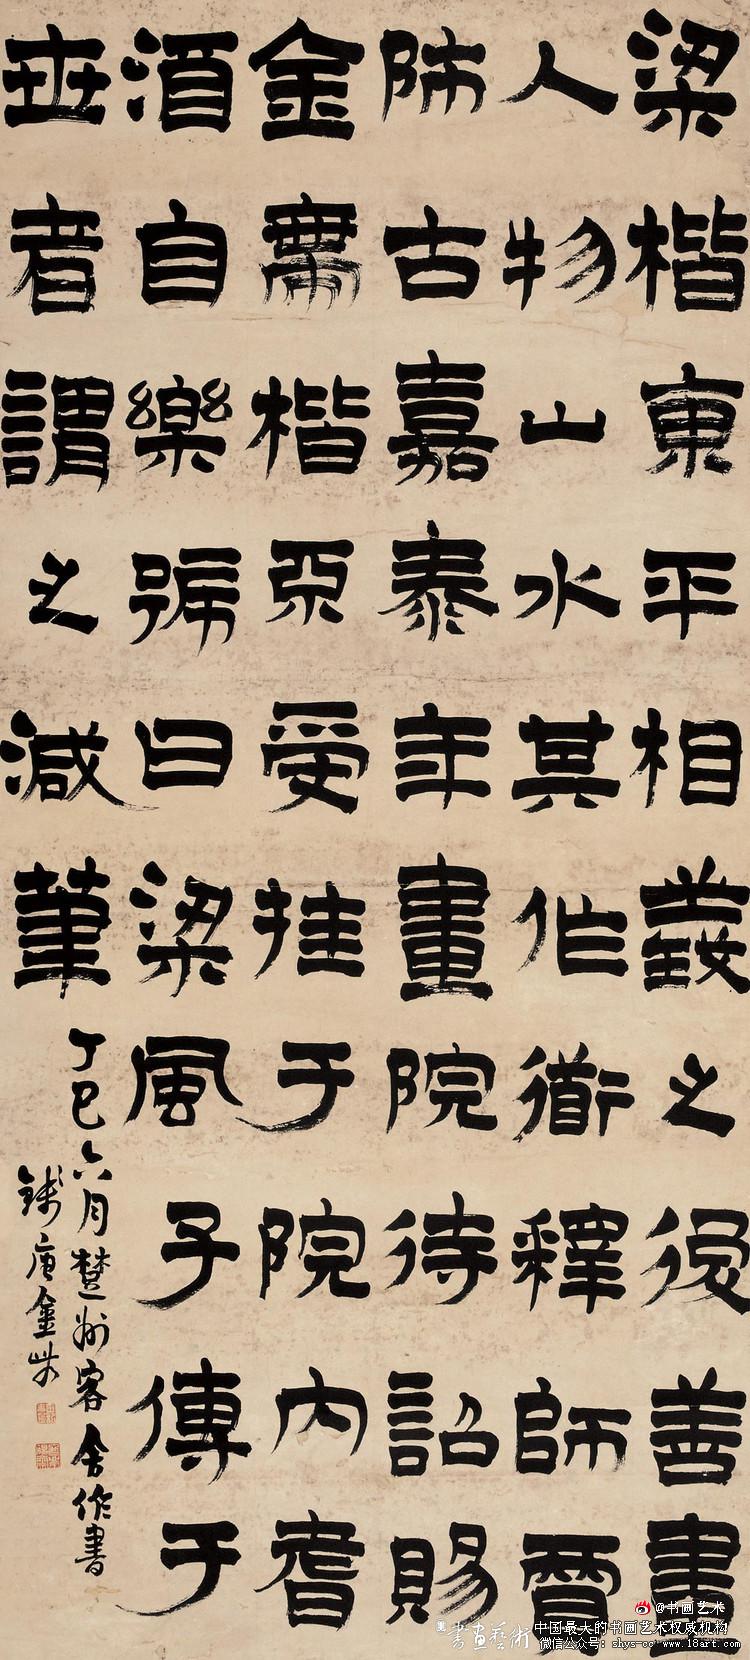 梁楷東平相義之後善畫
人物山水其作衟釋師賈
師古嘉泰年畫院待詔賜
金帶楷不受挂于院内耆
酒自樂號曰梁風子傳于
世者謂之減筆
丁巳六月楚州客舍作書
錢唐金農
@书画艺术
書畫藝術
中国最大的书画艺术权威机构
微信公众号：shys-cc www.18art.com